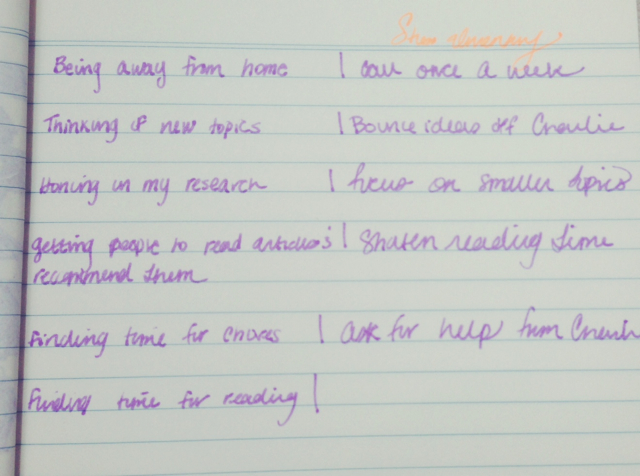 Being away from home | call once a week
Thinking of new topics | Bounce ideas off Charlie
Honing in my research | focus on smaller topics
getting people to read articles's | Shorten reading time
recommend them
Finding time for chores | ask for help from
Finding time for reading |